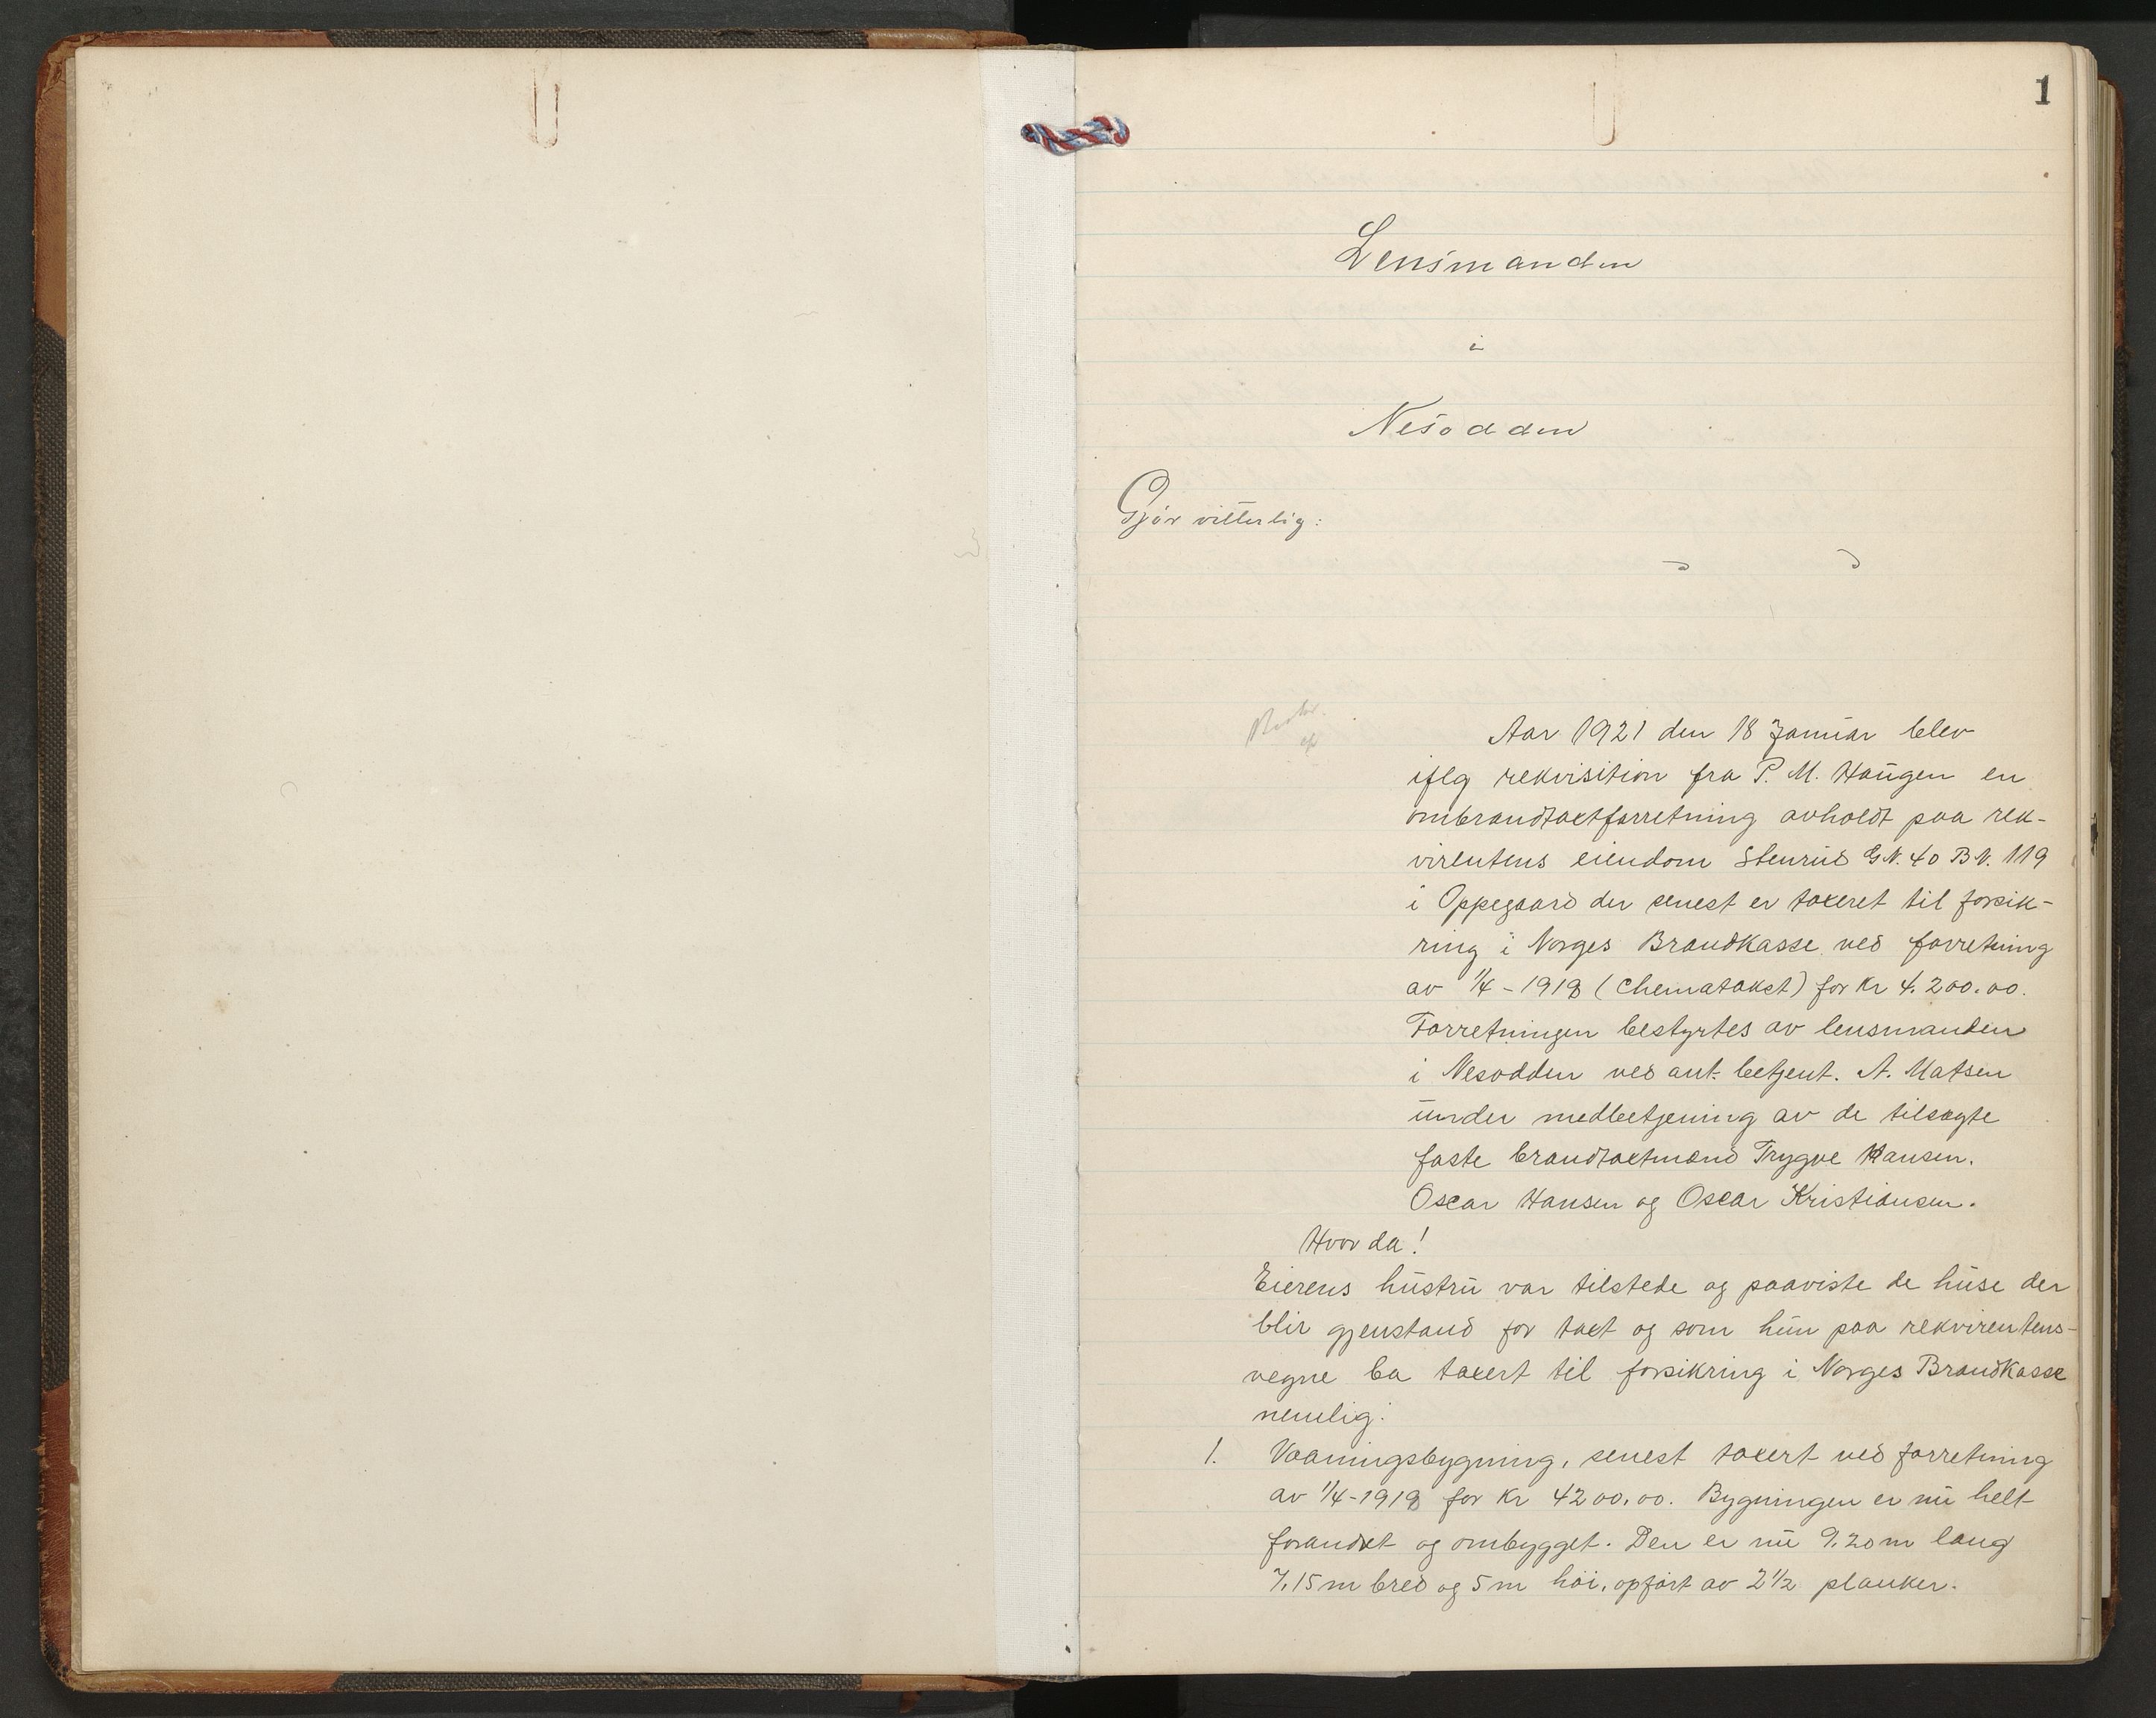 1
Lensmanden
i
Nesodden
Gjör vitterlig:
Aar 1921 den 18 Januar blev
iflg rekvisition fra P. M. Haugen en
ombrandtaxtforretning avholdt paa rek-
virentens eiendom Stenrud G.N. 40 B.N. 119
i Oppegaard der senest er taxeret til forsik-
ring i Norges Brandkasse ved forretning
av 1/4 - 1918 (Chematakst) for Kr 4.200.00.
Forretningen bestyrtes av lensmanden
i Nesodden ved aut. betjent. A. Matsen
under medbetjening av de tilsagte
faste brandtaxtmænd Trygve Hansen.
Oscar Hansen og Oscar Kristiansen.
Hvor da!
Eierens hustru var tilstede og paaviste de huse der
blir gjenstand for taxt og som hun paa rekvirentens-
vegne ba taxert til forsikring i Norges Brandkasse
nemlig:
1. Vaaningsbygning, senest taxert ved forretning
av 1/4-1918 for Kr 4200.00. Bygningen er nu helt
forandret og ombygget. Den er nu 9.20 m lang
7,15 m bred og 5 m höi, opfört av 2 1/2 planker.